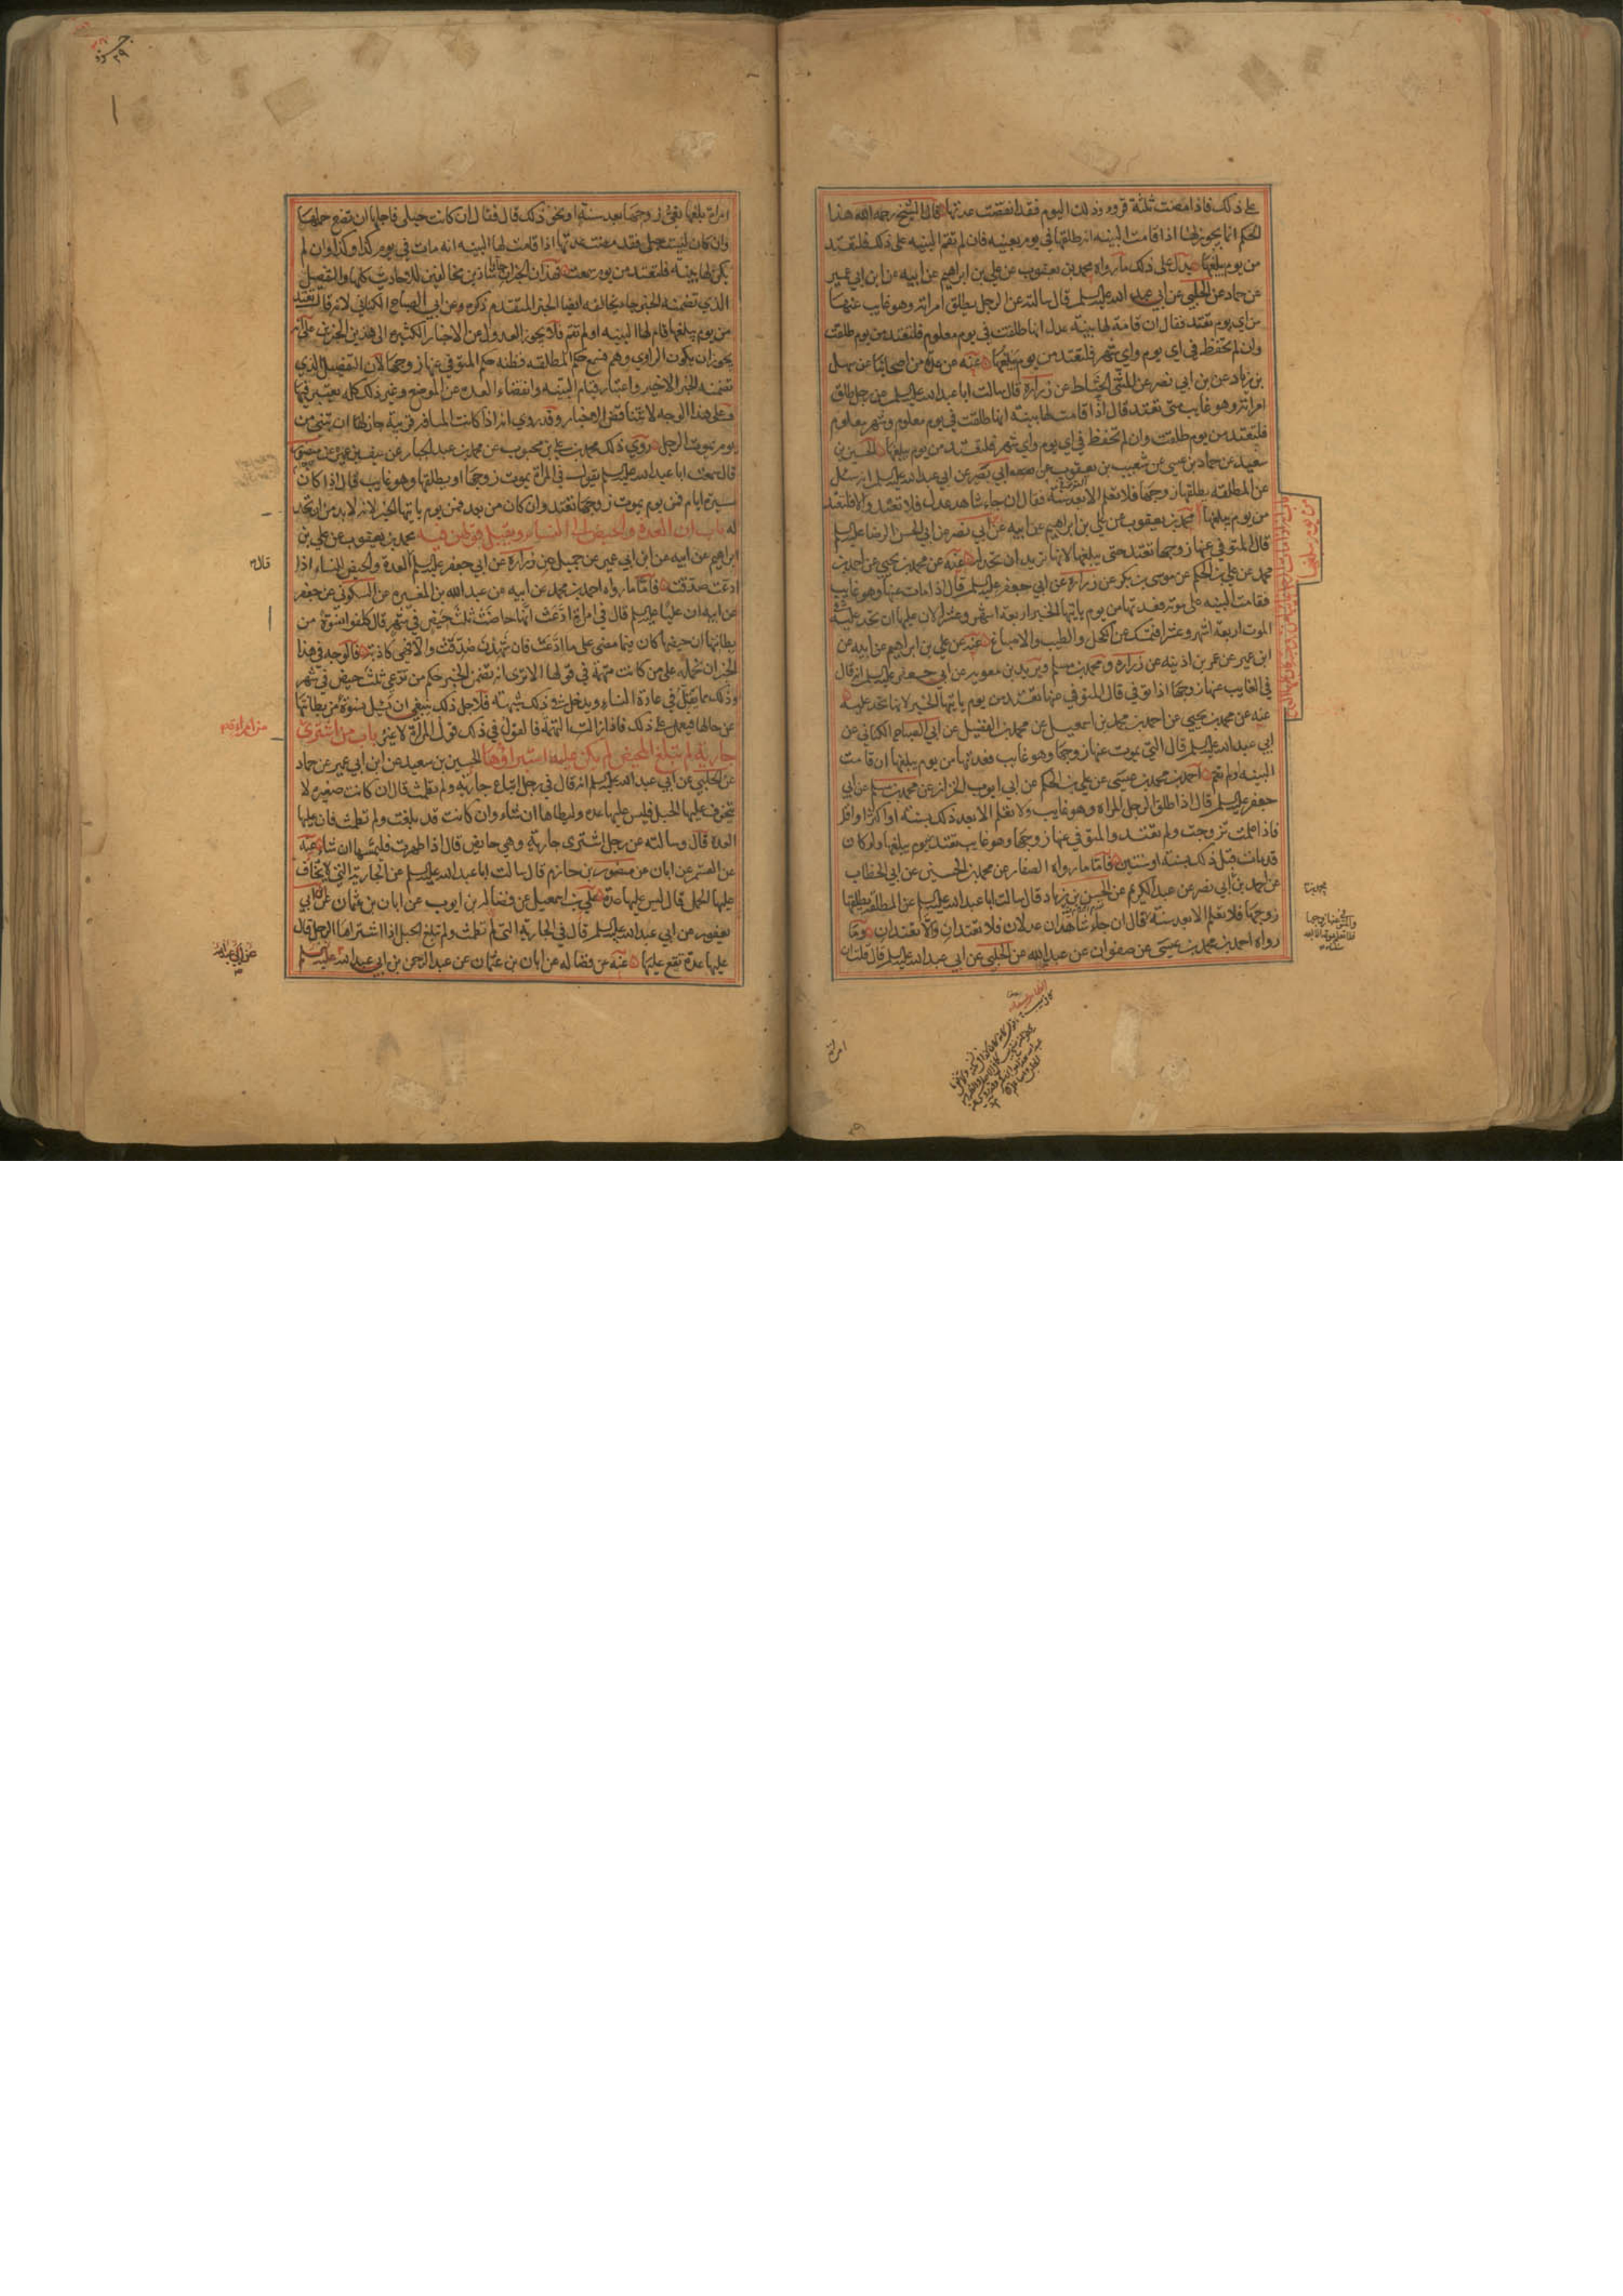 على ذلك فاذا مضت ثلثة قروء من ذلك اليوم فقد انقضت عدتها قال الشيخ رحمه الله هذا
الحكم انما يجوز لها اذا قامت البينه انه طلقها في يوم بعينه فان لم تقم البينه على ذلك فلتعتد
من يوم يبلغها يدل على ذلك ما رواه محمد بن يعقوب عن علي بن ابراهيم عن ابيه عن ابن ابي عمير
عن حماد عن الحلبي عن ابي عبد الله عليه السلم قال سالته عن الرجل يطلق امراته وهو غايب عنها
من اي يوم تعتد فقال ان قامة لها بينة عدل انها طلقت في يوم معلوم فلتعتد من يوم طلقت
وان لم تحفظ في اي يوم واي شهر فلتعتد من يوم يبلغها عنه عن عدة من اصحابنا عن سهل
بن زياد عن بن ابي نصر عن المثنى الحناط عن زرارة قال سالت ابا عبد الله عليه السلم عن رجل طلق
امراته وهو غايب متى تعتد قال اذا قامت لها بينة انها طلقت في يوم معلوم وشهر معلوم
فلتعتد من يوم طلقت وان لم تحفظ في اي يوم واي شهر فلتعتد من يوم يبلغها الحسين بن
سعيد عن حماد بن عيسى عن شعيب بن يعقوب عن ابي بصير عن ابي عبد الله عليه السلم انه سئل
عن المطلقه يطلقها زوجها فلا تعلم الا بعد سنة فقال ان جاء شاهد عدل فلا تعتد والا فلتعتد
من يوم يبلغها محمد بن يعقوب عن علي بن ابراهيم عن ابيه عن ابن ابي نصر عن ابي الحسن الرضا عليه السلم
قال المتوفى عنها زوجها تعتد حتى يبلغها لانها تريد ان تحد له عنه عن محمد بن يحيى عن احمد بن
محمد عن علي بن الحكم عن موسى بن بكر عن زرارة عن ابي جعفر عليه السلم قال اذا مات عنها وهو غايب
فقامت البينه على موته فعدتها من يوم ياتيها الخبر اربعة اشهر وعشرا لان عليها ان تحد عليه في
الموت اربعة اشهر وعشرا فتمسك عن الكحل والطيب والاصباغ عنه عن علي بن ابراهيم عن ابيه عن
ابن عمير عن عمر بن اذينه عن زراره ومحمد بن مسلم وبريد بن معويه عن ابي جعفر عليه السلم انه قال
في الغايب عنها زوجها اذا توفي قال المتوفي عنها تعتد من يوم ياتيها الخبر لانها تحد عليه
عنه عن محمد بن يحيى عن احمد بن محمد بن اسمعيل عن محمد بن الفضيل عن ابي الصباح الكناني عن
ابي عبد الله عليه السلم قال التي يموت عنها زوجها وهو غايب فعدتها من يوم يبلغها ان قامت
البينه او لم تقم احمد بن محمد بن عيسى عن علي بن الحكم عن ابي ايوب الخزاز عن محمد بن مسلم عن ابي
جعفر عليه السلم قال اذا طلق الرجل المراه وهو غايب ولا تعلم الا بعد ذلك بسنه او اكثر او اقل
فاذا علمت تزوجت ولم تعتد والمتوفي عنها زوجها وهو غايب تعتد يوم يبلغها ولو كان
قد مات قبل ذلك بسنة او سنتين فاما ما رواه الصفار عن محمد بن الحسين عن ابي الخطاب
عن احمد بن ابي نصر عن عبد الكريم عن الحسن بن زياد قال سالت ابا عبد الله عليه السلم عن المطلقه يطلقها
زوجها فلا تعلم الا بعد سنة فقال ان جاء شاهدان عدلان فلا تعتدان والا تعتدان وما
رواه احمد بن محمد بن عيسى عن صفوان عن عبد الله عن الحلبي عن ابي عبد الله عليه السلم قال قلت له
من يوم يبلغها
امراة
جزو
٢٩
امراة بلغها نعي زوجها بعد سنة او نحو ذلك قال فقال ان كانت حبلى فاجلها ان تضع حملها
وان كان ليست بحبلى فقد مضت عدتها اذا قامت لها البينه انه مات في يوم كذا وكذا وان لم
يكن لها بينه فلتعتد من يوم سمعت فهذان الخبران شاذين مخالفين للاحاديث كلها والتفصيل
الذي تضمنه الخبر جاء يخالفه ايضا الخبر المتقدم ذكره وعن ابي الصباح الكناني لانه قال تعتد
من يوم يبلغها قام لها البينه او لم تقم فلا يجوز العدول عن الاخبار الكثيره الى هذين الخبرين على انه
يجوز ان يكون الراوي وهم فسمع حكم المطلقه فظنه حكم المتوفي عنها زوجها لان التفصيل الذي
تضمنه الخبر الاخير واعتبار قيام البينه وانقضاء العدة عن الموضع وغير ذلك كله يعتبر فيها
وعلى هذا الوجه لا تتناقض الاخبار وقد روي انه اذا كانت المسافة قريبة جاز لها ان تبنى من
يوم يموت الرجل روى ذلك محمد بن علي بن محبوب عن محمد بن عبد الجبار عن سيف بن عميره عن منصور
قال سمعت ابا عبد الله عليه السلم يقول في المراة يموت زوجها او يطلقها وهو غايب قال اذا كان
مسيرة ايام فمن يوم يموت زوجها تعتد وان كان من بعد فمن يوم ياتيها الخبر لانه لابد من ان تحد
له باب ان العدة والحيض الى النساء ويقبل قولهن فيه محمد بن يعقوب عن علي بن
ابراهيم عن ابيه عن ابن ابي عمير عن جميل عن زرارة عن ابي جعفر عليه السلم العدة والحيض للنساء اذا
ادعت صدقت فاما ما رواه احمد بن محمد عن ابيه عن عبد الله بن المغيره عن السكوني عن جعفر
عن ابيه ان عليا عليه السلم قال في امراة ادعت انها حاضت ثلث حيض في شهر قال كلفوا نسوة من
بطانتها ان حيضها كان فيما مضى على ما ادعت فان شهدت صدقت والا فهي كاذبة فالوجه في هذا
الخبر ان نحمله على من كانت متهمة في قولها الا ترى انه تضمن الخبر حكم من تدعي ثلث حيض في شهر
وذلك ما يقل في عادة النساء ويدخل في ذلك شبهة فلاجل ذلك ينبغي ان يسئل نسوة من بطانتها
عن حالها فيعمل على ذلك فاذا زالت التهمة فالقول في ذلك قول المراة لا غير باب من اشترى
جارية لم تبلغ المحيض لم يكن عليه استبراؤها الحسين بن سعيد عن ابن ابي عمير عن حماد
عن الحلبي عن ابي عبد الله عليه السلم انه قال في رجل ابتاع جارية ولم تطمث قال ان كانت صغيرة لا
يتخوف عليها الحبل فليس عليها عده وليطاها ان شاء وان كانت قد بلغت ولم تطمث فان عليها
العدة قال وسالته عن رجل اشترى جارية وهي حايض قال اذا طهرت فليمسها ان شاء عنه
عن القسم عن ابان عن منصور بن حازم قال سالت ابا عبد الله عليه السلم عن الجارية التي لا يخاف
عليها الحمل قال ليس عليها عدة علي بن اسمعيل عن فضالة بن ايوب عن ابان بن عثمان عن ابن ابي
يعفور عن ابي عبد الله عليه السلم قال في الجارية التي لم تطمث ولم تبلغ الحبل اذا اشتراها الرجل قال
عليها عدة تقع عليها عنه عن فضاله عن ابان بن عثمان عن عبد الرحمن بن ابي عبد الله عليه السلم
قال